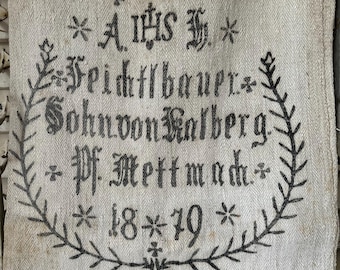 A. IHS H.
Feichtlbauer.
Sohn. von Kalberg.
Pf. Mettmach.
18*79